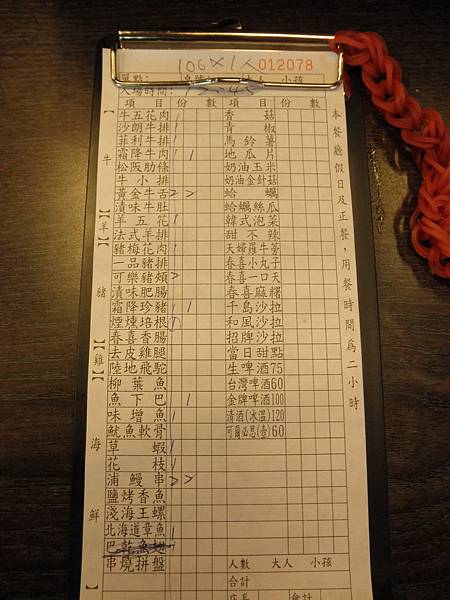 106×1人 012078
單點: 大人 小孩
入場時間: 12:45
項目 份數 項目 份數
【牛】
牛五花肉
沙朗牛排
菲利牛排
霜降牛肉
松阪肋條
牛小排
黃金牛舌
漬味牛肚
【羊】
羊五花
法式羊排
【豬】
豬梅花肉
一品豬排
可樂豬頰
漬味肥腸
霜降珍豬
煙燻培根
春喜香腸
【雞】
去皮雞腿
陸地飛駝
【海鮮】
柳葉魚
魚下巴
味增魚
魷魚軟骨
草蝦
花枝
浦鰻串
鹽烤香魚
淺海王螺
北海道章魚
巴乾魚翅
串燒拼盤
香菇
青椒
馬鈴薯
地瓜片
奶油玉米
奶油金針菇
蛤蠣
蛤蠣絲瓜
韓式泡菜
甜不辣
天婦羅牛蒡
春喜小丸子
春喜一口天
春喜麻糬
千島沙拉
和風沙拉
招牌沙拉
當日甜點
生啤酒75
台灣啤酒60
金牌啤酒100
清酒(冰溫)120
可爾必思(壺)60
人數 大人 小孩
合計
店長 會計
本餐廳假日及正餐,用餐時間為二小時